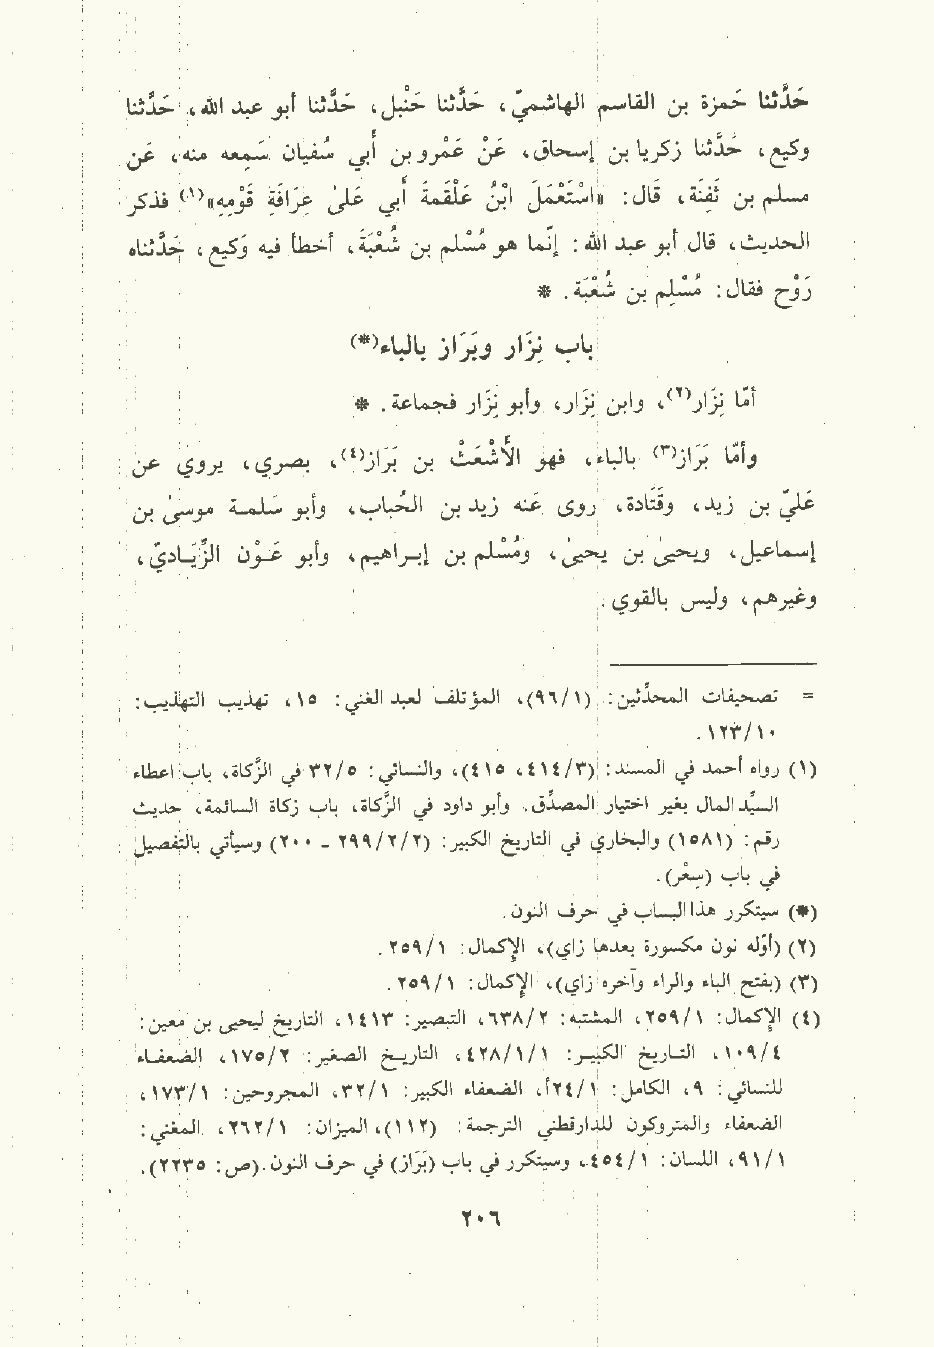 حَدَّثنا حَمزة بن القاسم الهاشميّ، حَدَّثنا حَنْبل، حَدَّثنا أبو عبد الله، حَدَّثنا
وكيع، حَدَّثنا زكريا بن إسحاق، عَنْ عَمْرو بن أَبي سُفيان سَمِعه منه، عَن
مسلم بن ثَفِنَة، قَال: «اسْتَعْمَلَ ابْنُ عَلْقَمَةَ أَبي عَلىٰ عِرَافَةِ قَوْمِهِ»(١) فذكر
الحديث، قال أبو عبد الله: إنَّما هو مُسْلم بن شُعْبَة، أخطأ فيه وَكيع، حَدَّثناه
رَوْح فقال: مُسْلِم بن شُعْبَة. *
باب نِزَار وبَرَاز بالباء(*)
أمّا نِزَار(٢)، وابن نِزَار، وأبو نِزَار فجماعة. *
وأمّا بَرَاز(٣) بالباء، فهو الأَشْعَثْ بن بَرَاز(٤)، بصري، يروي عن
عَليّ بن زيد، وقَتَادة، روى عَنه زيد بن الحُباب، وأبو سَلمة موسىٰ بن
إسماعيل، ويحيىٰ بن يحيىٰ، ومُسْلم بن إبراهيم، وأبو عَوْن الزِّيَاديّ،
وغيرهم، وليس بالقوي.
= تصحيفات المحدِّثين: (٩٦/١)، المؤتلف لعبد الغني: ١٥، تهذيب التهذيب:
١٢٣/١٠.
(١) رواه أحمد في المسند: (٤١٤/٣، ٤١٥)، والنسائي: ٣٢/٥ في الزَّكاة، باب إعطاء
السيِّد المال بغير اختيار المصدِّق. وأبو داود في الزَّكاة، باب زكاة السائمة، حديث
رقم: (١٥٨١) والبخاري في التاريخ الكبير: (٢٩٩/٢/٢ - ٢٠٠) وسيأتي بالتفصيل
في باب (سِعْر).
(*) سيتكرر هذا الباب في حرف النون.
(٢) (أوَّله نون مكسورة بعدها زاي)، الإكمال: ٢٥٩/١.
(٣) (بفتح الباء والراء وآخره زاي)، الإكمال: ٢٥٩/١.
(٤) الإكمال: ٢٥٩/١، المشتبه: ٦٣٨/٢، التبصير: ١٤١٣، التاريخ ليحيى بن معين:
١٠٩/٤، التاريخ الكبير: ٤٢٨/١/١، التاريخ الصغير: ١٧٥/٢، الضعفاء
للنسائي: ٩، الكامل: ٢٤/١أ، الضعفاء الكبير: ٣٢/١، المجروحين: ١٧٣/١،
الضعفاء والمتروكون للدارقطني الترجمة: (١١٢)، الميزان: ٢٦٢/١، المغني:
٩١/١، اللسان: ٤٥٤/١، وسيتكرر في باب (بَرَاز) في حرف النون.(ص: ٢٢٣٥).
٢٠٦